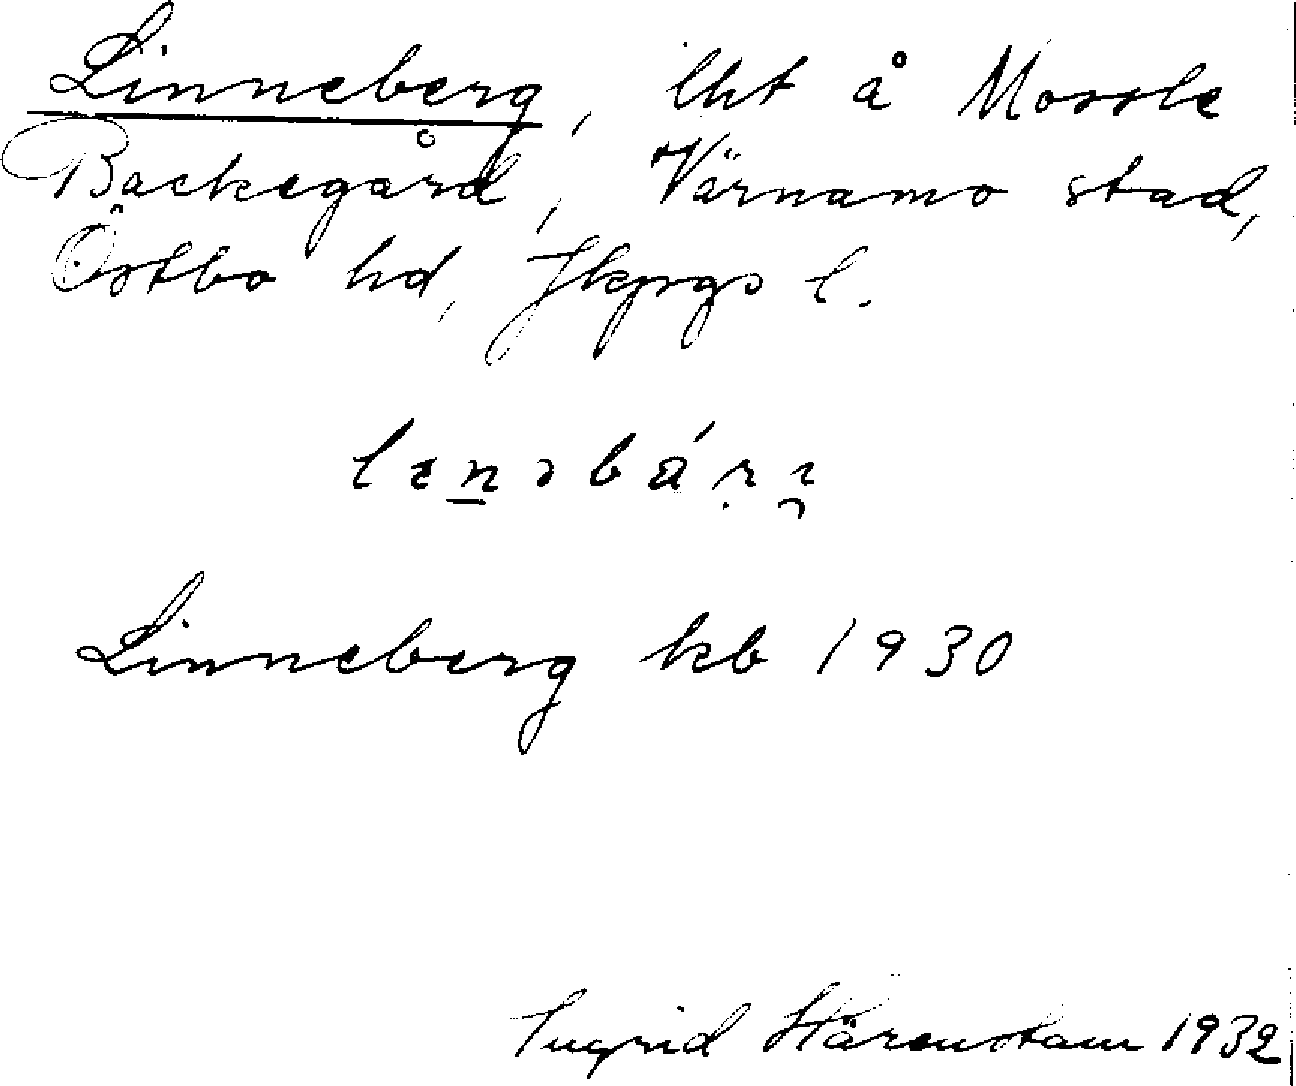 Linneberg, lht å Mossle
Backegård, Värnamo stad,
Östbo hd, Jkpgs l.
Linneberg kb 1930
Ingrid Härenstam 1932